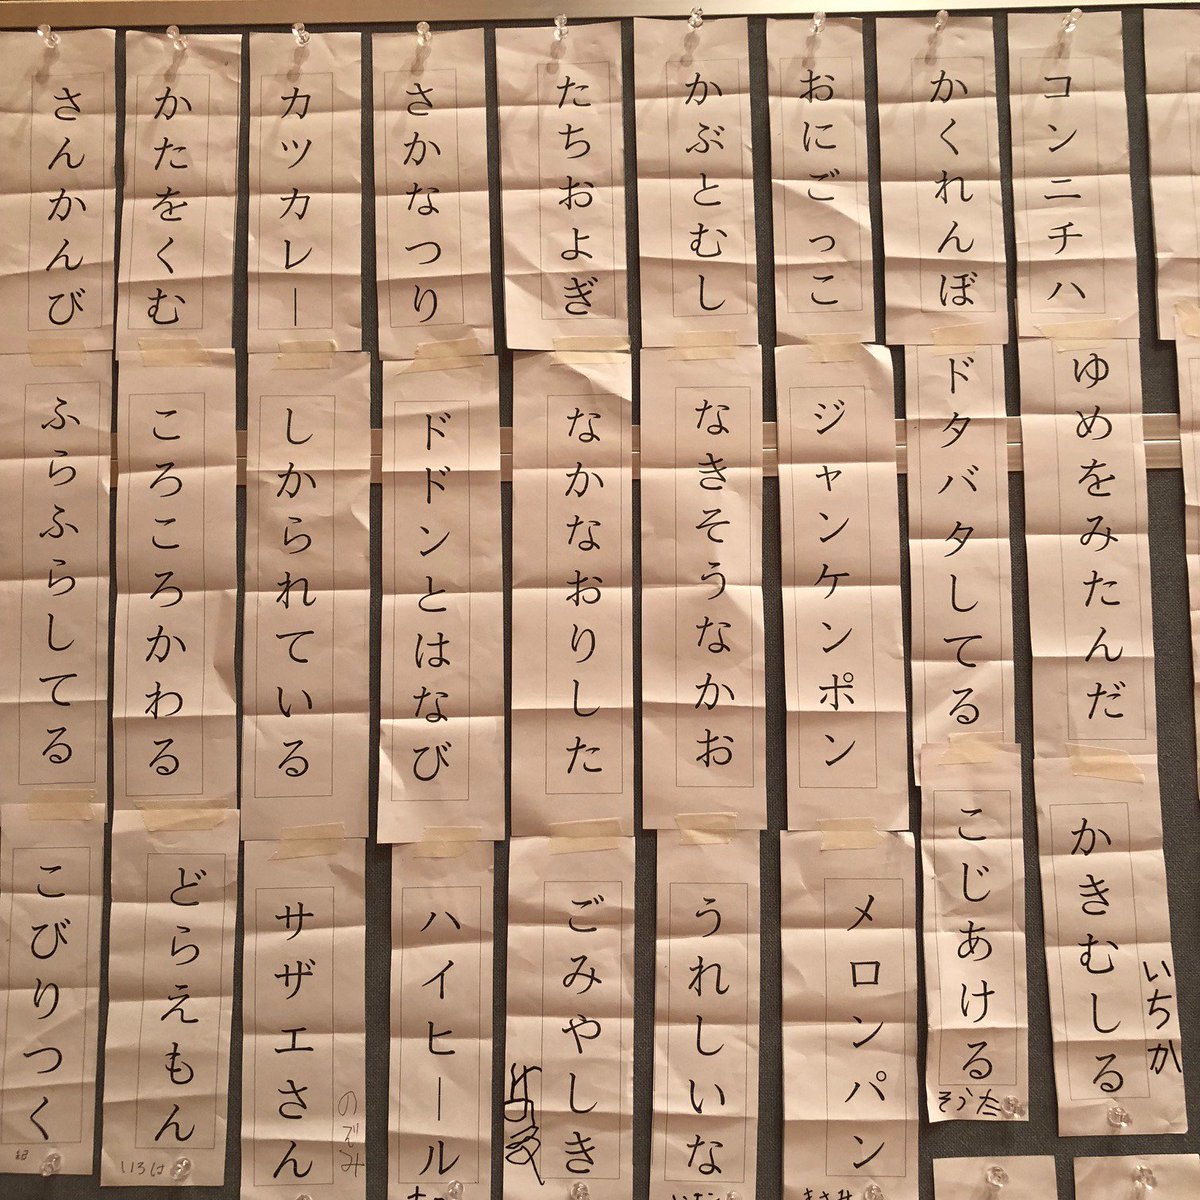 コンニチハ
ゆめをみたんだ
かきむしる
いちか
かくれんぼ
ドタバタしてる
こじあける
そう太
おにごっこ
ジャンケンポン
メロンパン
まさみ
かぶとむし
なきそうなかお
うれしいな
たちおよぎ
なかなおりした
ごみやしき
さかなつり
ドドンとはなび
ハイヒール
カツカレー
しかられている
サザエさん
のぞみ
かたをくむ
ころころかわる
どらえもん
いろは
さんかんび
ふらふらしてる
こびりつく